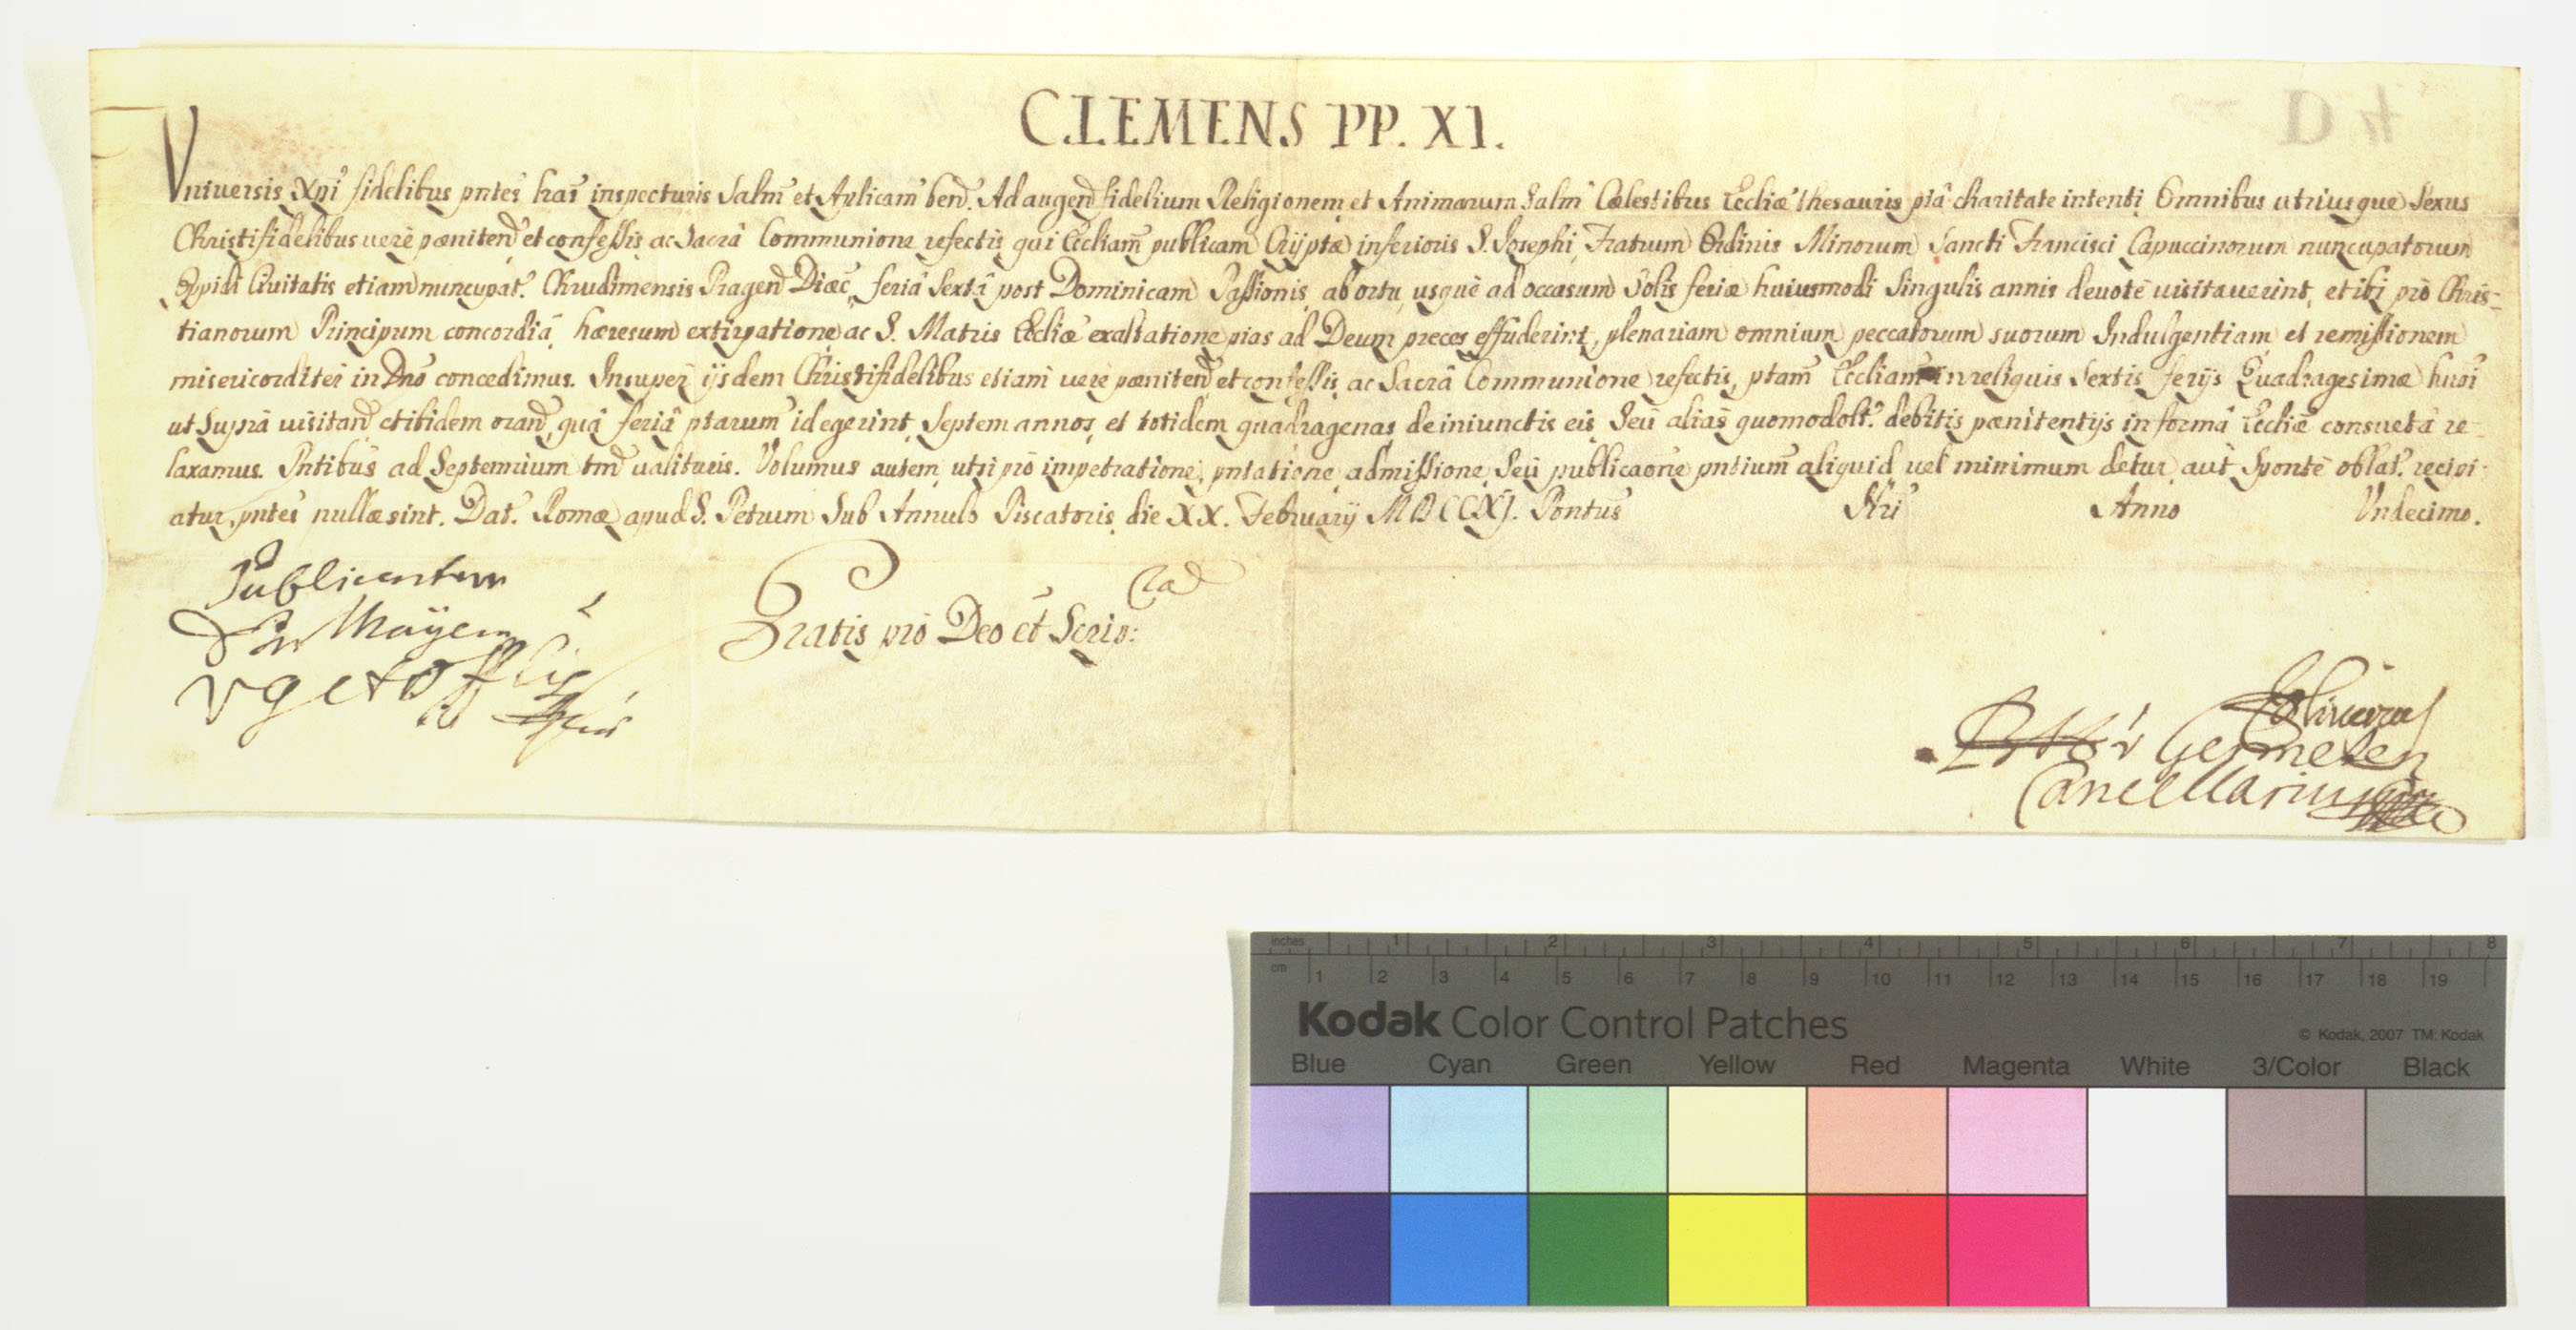 CLEMENS PP. XI.
Vniuersis Xpi fidelibus pntes has inspecturis Salm et Aplicam bend. Ad augend fidelium Religionem, et Animarum Salm Cælestibus Eccliæ thesauris piâ charitate intenti, Omnibus utriusque Sexus
Christifidelibus uerè pænitend, et confessis, ac Sacrâ Communione refectis, qui Eccliam publicam Cryptæ inferioris S. Josephi, Fratrum Ordinis Minorum Sancti Francisci Capuccinorum nuncupatorum
Oppidi Ciuitatis etiam nuncupat. Chrudimensis Pragen Diæc., feriâ Sextâ post Dominicam Passionis, ab ortu, usquè ad occasum Solis feriæ huiusmodi Singulis annis deuotè uisitauerint, et ibi prò Chris-
tianorum Principum concordiâ, hæresum extirpatione, ac S. Matris Eccliæ exaltatione pias ad Deum preces effuderint, plenariam omnium peccatorum suorum Indulgentiam, et remissionem
misericorditer in Dno concedimus. Insuper ijsdem Christifidelibus etiam uerè pænitend, et confessis, ac Sacrâ Communione refectis, ptam Eccliam in reliquis Sextis ferijs Quadragesimæ huoi
ut Suprà uisitand, et ibidem orand, quâ feriâ ptarum id egerint, Septem annos, et totidem quadragenas de iniunctis eis, Seu aliàs quomodolt. debitis pænitentijs in formâ Eccliæ consuetâ re-
laxamus. Pntibus ad Septennium tmd ualituris. Volumus autem, ut si prò impetratione, pntatione, admissione, Seù publicaone pntium aliquid uel minimum detur, aut Spontè oblat. recipi-
atur, pntes nullæ sint. Dat. Romæ apud S. Petrum Sub Annulo Piscatoris, die XX. February MDCCXI. Pontus Nri Anno Vndecimo.
Publicentur
Mayern
Vg et Offlis
Gratis prò Deo et Scrip:
Oliuerius
Cancellarius
inches 1 2 3 4 5 6 7 8
cm 1 2 3 4 5 6 7 8 9 10 11 12 13 14 15 16 17 18 19
Kodak Color Control Patches
© Kodak, 2007 TM: Kodak
Blue Cyan Green Yellow Red Magenta White 3/Color Black